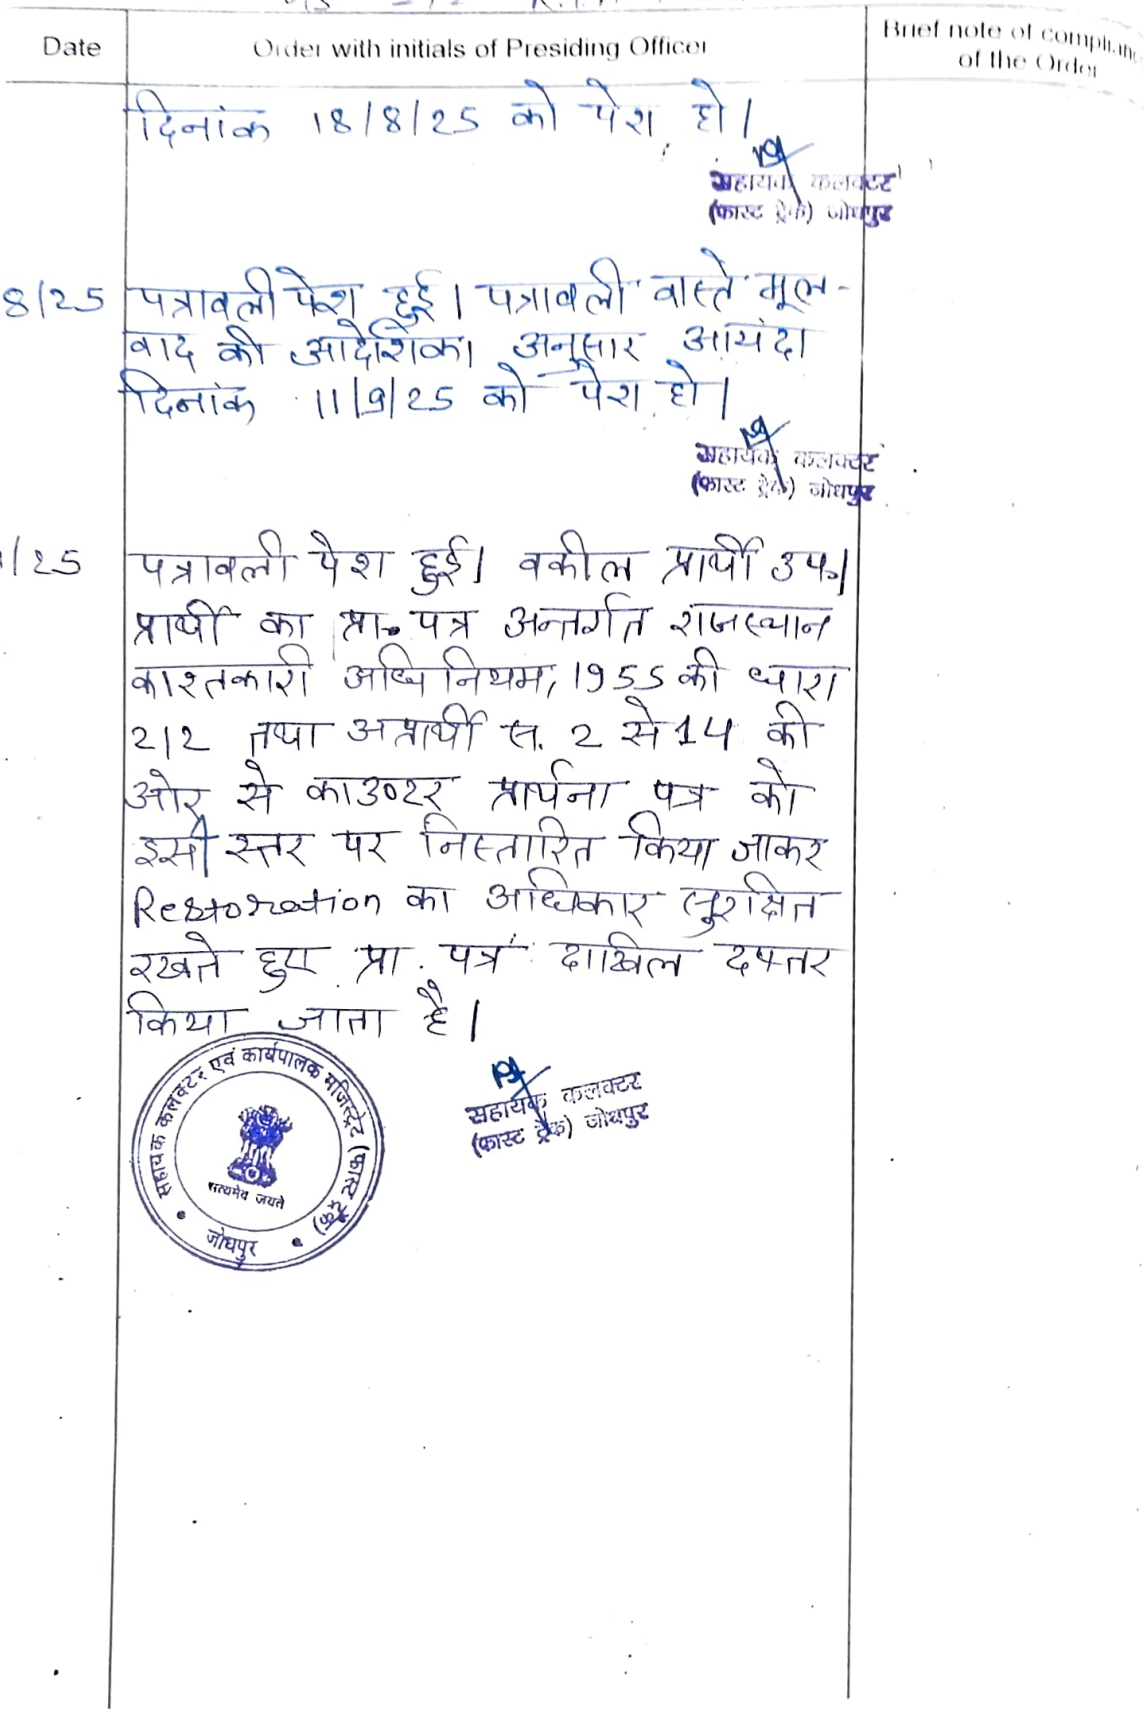 Date
Order with initials of Presiding Officer
Brief note of complianc
of the Order
दिनांक 18/8/25 को पेश हो।
सहायक कलक्टर
(फास्ट ट्रेक) जोधपुर
8/25 पत्रावली पेश हुई। पत्रावली वास्ते मूल-
वाद की आदेशिका अनुसार आयंदा
दिनांक 11/9/25 को पेश हो।
सहायक कलक्टर
(फास्ट ट्रेक) जोधपुर
/25 पत्रावली पेश हुई। वकील प्रार्थी उप.।
प्रार्थी का प्रा. पत्र अन्तर्गत राजस्थान
काश्तकारी अधिनियम, 1955 की धारा
212 तथा अप्रार्थी स. 2 से 14 की
ओर से काउण्टर प्रार्थना पत्र को
इसी स्तर पर निस्तारित किया जाकर
Restoration का अधिकार सुरक्षित
रखते हुए प्रा. पत्र दाखिल दफ्तर
किया जाता है।
सहायक कलक्टर एवं कार्यपालक मजिस्ट्रेट (फास्ट ट्रेक)
सत्यमेव जयते
जोधपुर
सहायक कलक्टर
(फास्ट ट्रेक) जोधपुर